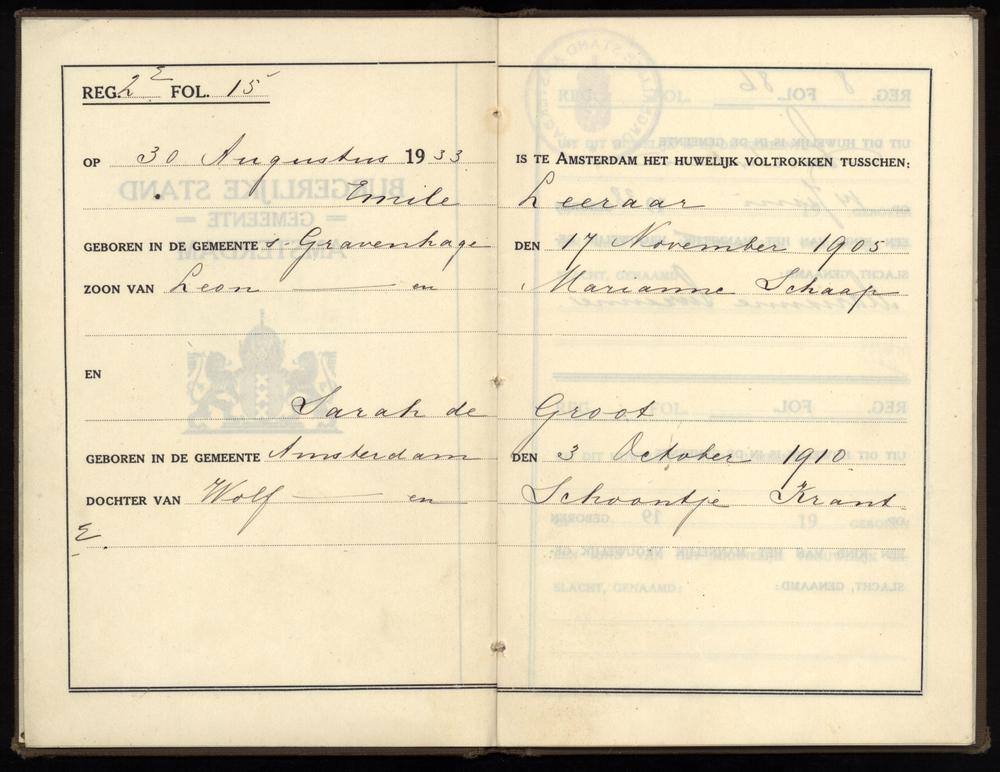 REG. 2E FOL. 15
OP 30 Augustus 1933 IS TE AMSTERDAM HET HUWELIJK VOLTROKKEN TUSSCHEN:
Emile Leeraar
GEBOREN IN DE GEMEENTE s-Gravenhage DEN 17 November 1905
ZOON VAN Leon — en Marianne Schaap
EN
Sarah de Groot
GEBOREN IN DE GEMEENTE Amsterdam DEN 3 October 1910
DOCHTER VAN Wolf — en Schoontje Krant
E.